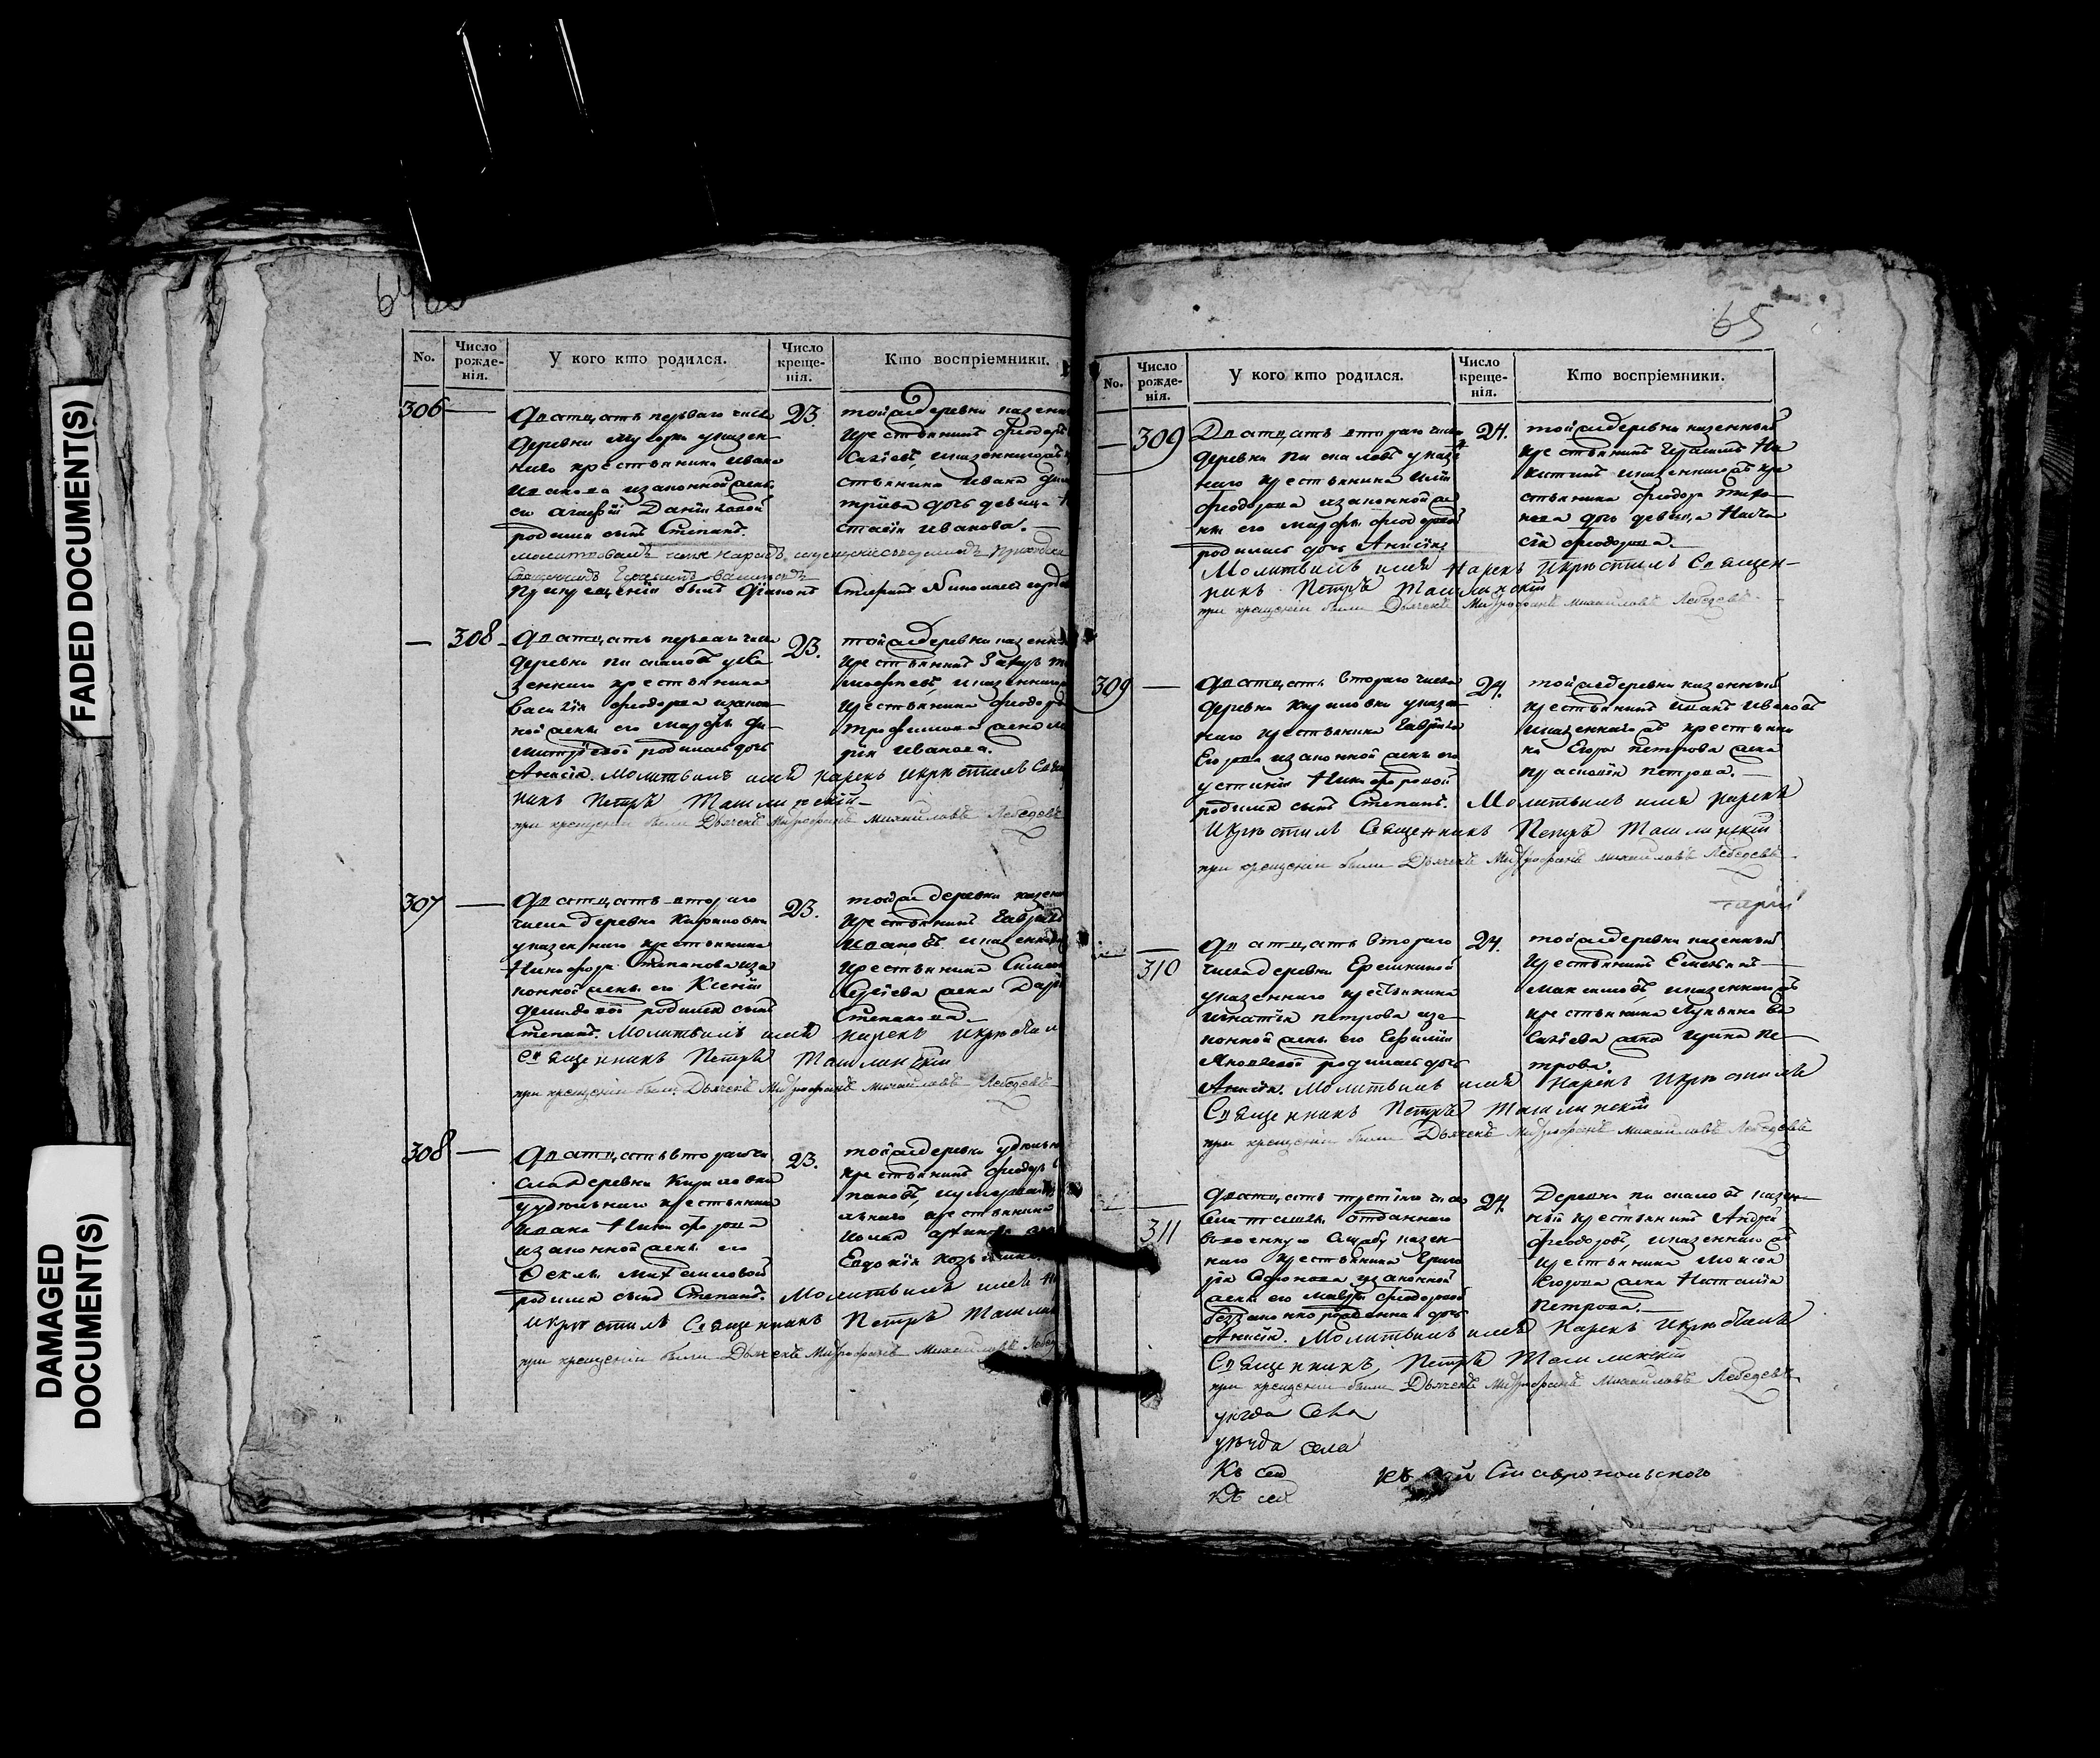 FADED DOCUMENT(S)
DAMAGED
DOCUMENT(S)
64
No.
Число рожде-нія.
У кого кто родился.
Число креще-нія.
Кто воспріемники.
306 —
Дватцать перваго числа
деревни у казен-
наго крестьянина Ивана
Иванова иззаконной жены
ево Агафіи Даниловой
родился сынъ Степанъ.
23.
тойже деревни казен
крестьянинъ Феодоръ
ственника Ивана
тріева дочь девица
стасія Иванова. —
— 308
Дватцать перваго числа
деревни Пискаловъ у ка
зеннаго крестьянина
Василія Феодорова иззакон
ной жены его Марфы Ди-
митріевой родилась дочь
Анисія. Молитвилъ имя нарекъ и крѣстилъ Свящ
никъ Петръ Ташлинскій
при крещеніи были Дьячекъ Митрофанъ Михайловъ Лебедевъ
23.
тойже деревни казен
крестьянинъ
крестьянина Феодора
Трофимова жена Ма
рія Иванова.
307 —
Дватцать втораго
числа деревни Кириловки
у казеннаго крестьянина
Никифора Степанова изза
конной жены его Ксеніи
Демидовой родился сынъ
Степанъ. Молитвилъ имя нарекъ и крѣстил
Священникъ Петръ Ташлинскій
при крещеніи были Дьячекъ Митрофанъ Михайловъ Лебедевъ
23.
тояже деревни казен
крестьянинъ Гаврійлъ
Ивановъ, и казенна
крестьянина
Сергіева жена Дарь
Степанова. —
308 —
Дватцать втораго чи
сла деревни Кириловки
у удѣльнаго крестьянина
Ивана Никифорова
иззаконной жены его
Феклы Михайловой
родился сынъ Степанъ. Молитвилъ имя на
и крѣстилъ Священникъ Петръ Ташлин
при крещеніи были Дьячекъ Митрофанъ Михайловъ Лебед
23.
тойже деревни удѣльн
крестьянинъ Феодоръ
крестьянина
Евдокія
65
No.
Число рожде-нія.
У кого кто родился.
Число креще-нія.
Кто воспріемники.
— 309
Дватцать втораго числа
деревни Пискаловъ у казен
наго крестьянина
Феодорова иззаконной же
ны его Марфы Феодоровой
родилась дочь Анисія
Молитвилъ имя нарекъ и крѣстилъ Священ-
никъ Петръ Ташлинскій
при крещеніи были Дьячекъ Митрофанъ Михайловъ Лебедевъ
24.
тойже деревни казенный
крестьянинъ Герасимъ Ни
китинъ и казеннаго кре
стьянина Феодора Тимо
дочь девица Наста
сія Феодорова. —
309 —
Дватцать втораго числа
деревни Кириловки у казен
наго крестьянина Гавріила
Егорова иззаконной жены его
Устиніи Никифоровой
родился сынъ Степанъ. Молитвилъ имя нарекъ
и крѣстилъ Священникъ Петръ Ташлинскій
при крещеніи были Дьячекъ Митрофанъ Михайловъ Лебедевъ
24.
тойже деревни казенный
крестьянинъ Иванъ Ивановъ
и казеннаго крестьяни
на Егора Петрова жена
Прасковія Петрова. —
310
Дватцать втораго
числа деревни Еремкиной
у казеннаго крестьянина
Игнатія Петрова изза
конной жены его Евфиміи
Яковлевой родилась дочь
Анисія. Молитвилъ имя нарекъ и крѣстилъ
Священникъ Петръ Ташлинскій
при крещеніи были Дьячекъ Митрофанъ Михайловъ Лебедевъ
24.
тойже деревни казенный
крестьянинъ Емельянъ
Максимовъ, и казеннаго
крестьянина Лукьяна Ва
силіева жена Ирина Пе
трова.
311
Дватцать третіяго числа
села отданнаго
в военную службу казен
наго крестьянина Григо
рія Сафонова иззаконной
жены его Мавры Феодоровой
беззаконно рожденна дочь
Анисія. Молитвилъ имя нарекъ и крѣстилъ
Священникъ, Петръ Ташлинскій
при крещеніи были Дьячекъ Митрофанъ Михайловъ Лебедевъ
24.
деревни Пискаловъ казен
ный крестьянинъ Андрей
Феодоровъ, и казеннаго
крестьянина Моисея
Егорова жена Наталія
Петрова. —
уѣзда села
уѣзда села
Къ сел
Къ сел
Ставропольского